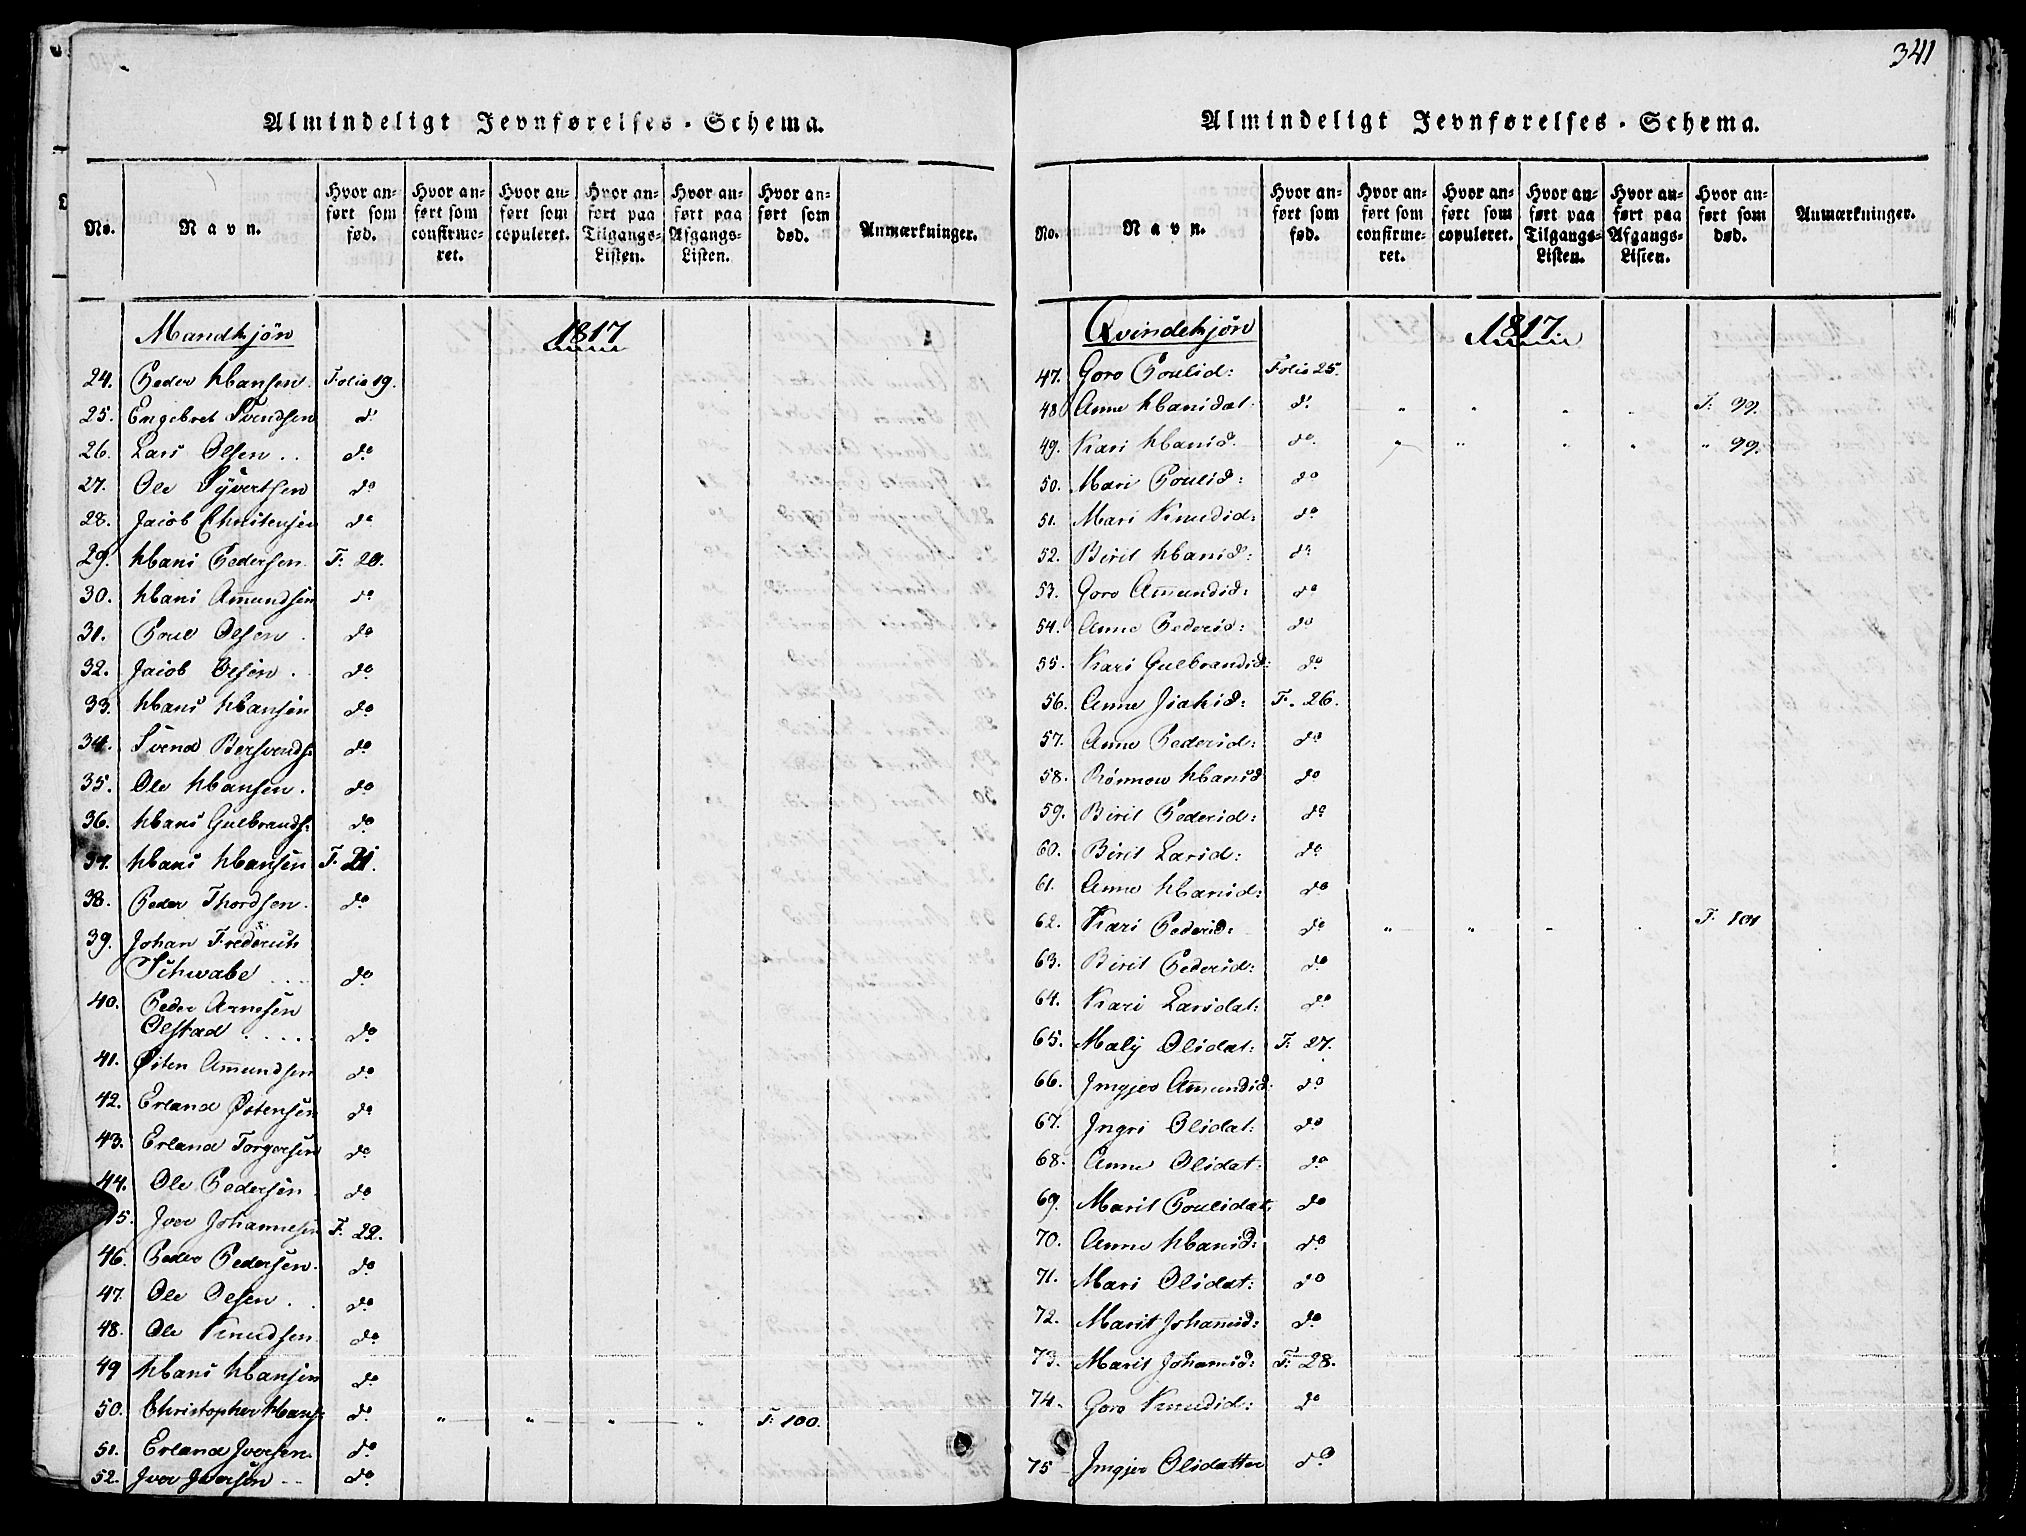 341
Almindeligt Jevnførelses-Schema.
No. Navn. Hvor anført som fød. Hvor anført som confirmeret. Hvor anført som copuleret. Hvor anført paa Tilgangs-Listen. Hvor anført paa Afgangs-Listen. Hvor anført som død. Anmærkninger.
Mandkjön 1817
24. Peder Hansen. Folio 19.
25. Engebret Svendsen do
26. Lars Olsen . . do
27. Ole Syvertsen do
28. Jacob Christensen do
29. Hans Pedersen. F. 20.
30. Hans Amundsen do
31. Poul Olsen . do
32. Jacob Olsen . do
33. Hans Hansen do
34. Svend Bersvends: do
35. Ole Hansen . do
36. Hans Gulbrands: do
37. Hans Hansen F. 21.
38. Peder Thordsen. do
39. Johan Frederich
Schwabe . . . . do
40. Peder Arnesen
Olstad . . . . . do
41. Östen Amundsen do
42. Erland Östensen do
43. Erland Torgersen do
44. Ole Pedersen do
45. Iver Johannesen F. 22.
46. Peder Pedersen. do
47. Ole Olsen . . do
48. Ole Knudsen do
49 Hans Hansen do
50. Christopher Hans: do " " " " F: 100.
51. Erland Iversen. do
52. Iver Iversen . . do
Almindeligt Jevnførelses-Schema.
No. Navn. Hvor anført som fød. Hvor anført som confirmeret. Hvor anført som copuleret. Hvor anført paa Tilgangs-Listen. Hvor anført paa Afgangs-Listen. Hvor anført som død. Anmærkninger.
Qvindekjön 1817.
47. Goro Poulsd: Folio 25.
48 Anne Hansdat. do " " " " F: 99.
49. Kari Hansd. do. " " " " " 99.
50. Mari Poulsd: do
51. Mari Knudsd: do
52. Birit Hansd: do
53. Goro Amundsd: do
54. Anne Pedersd: do
55. Kari Gulbrandsd: do
56. Anne  F. 26.
57. Anne Pedersd: do
58. Rönnow Hansd do
59. Birit Pedersd: do
60. Birit Larsd: do
61. Anne Hansd: do
62. Kari Pedersd: do " " " " F. 101
63. Birit Pedersd: do
64. Kari Larsdat: do
65. Maly Olsdat: F. 27.
66. Ingjer Amundsd: do
67. Ingri Olsdat: do
68. Anne Olsdat: do
69. Marit Poulsdat. do
70. Anne Hansd: do
71. Mari Olsdat: do
72. Marit Johansd: do
73. Marit Johansd: F. 28.
74. Goro Knudsd: do
75 Ingjer Olsdatter do